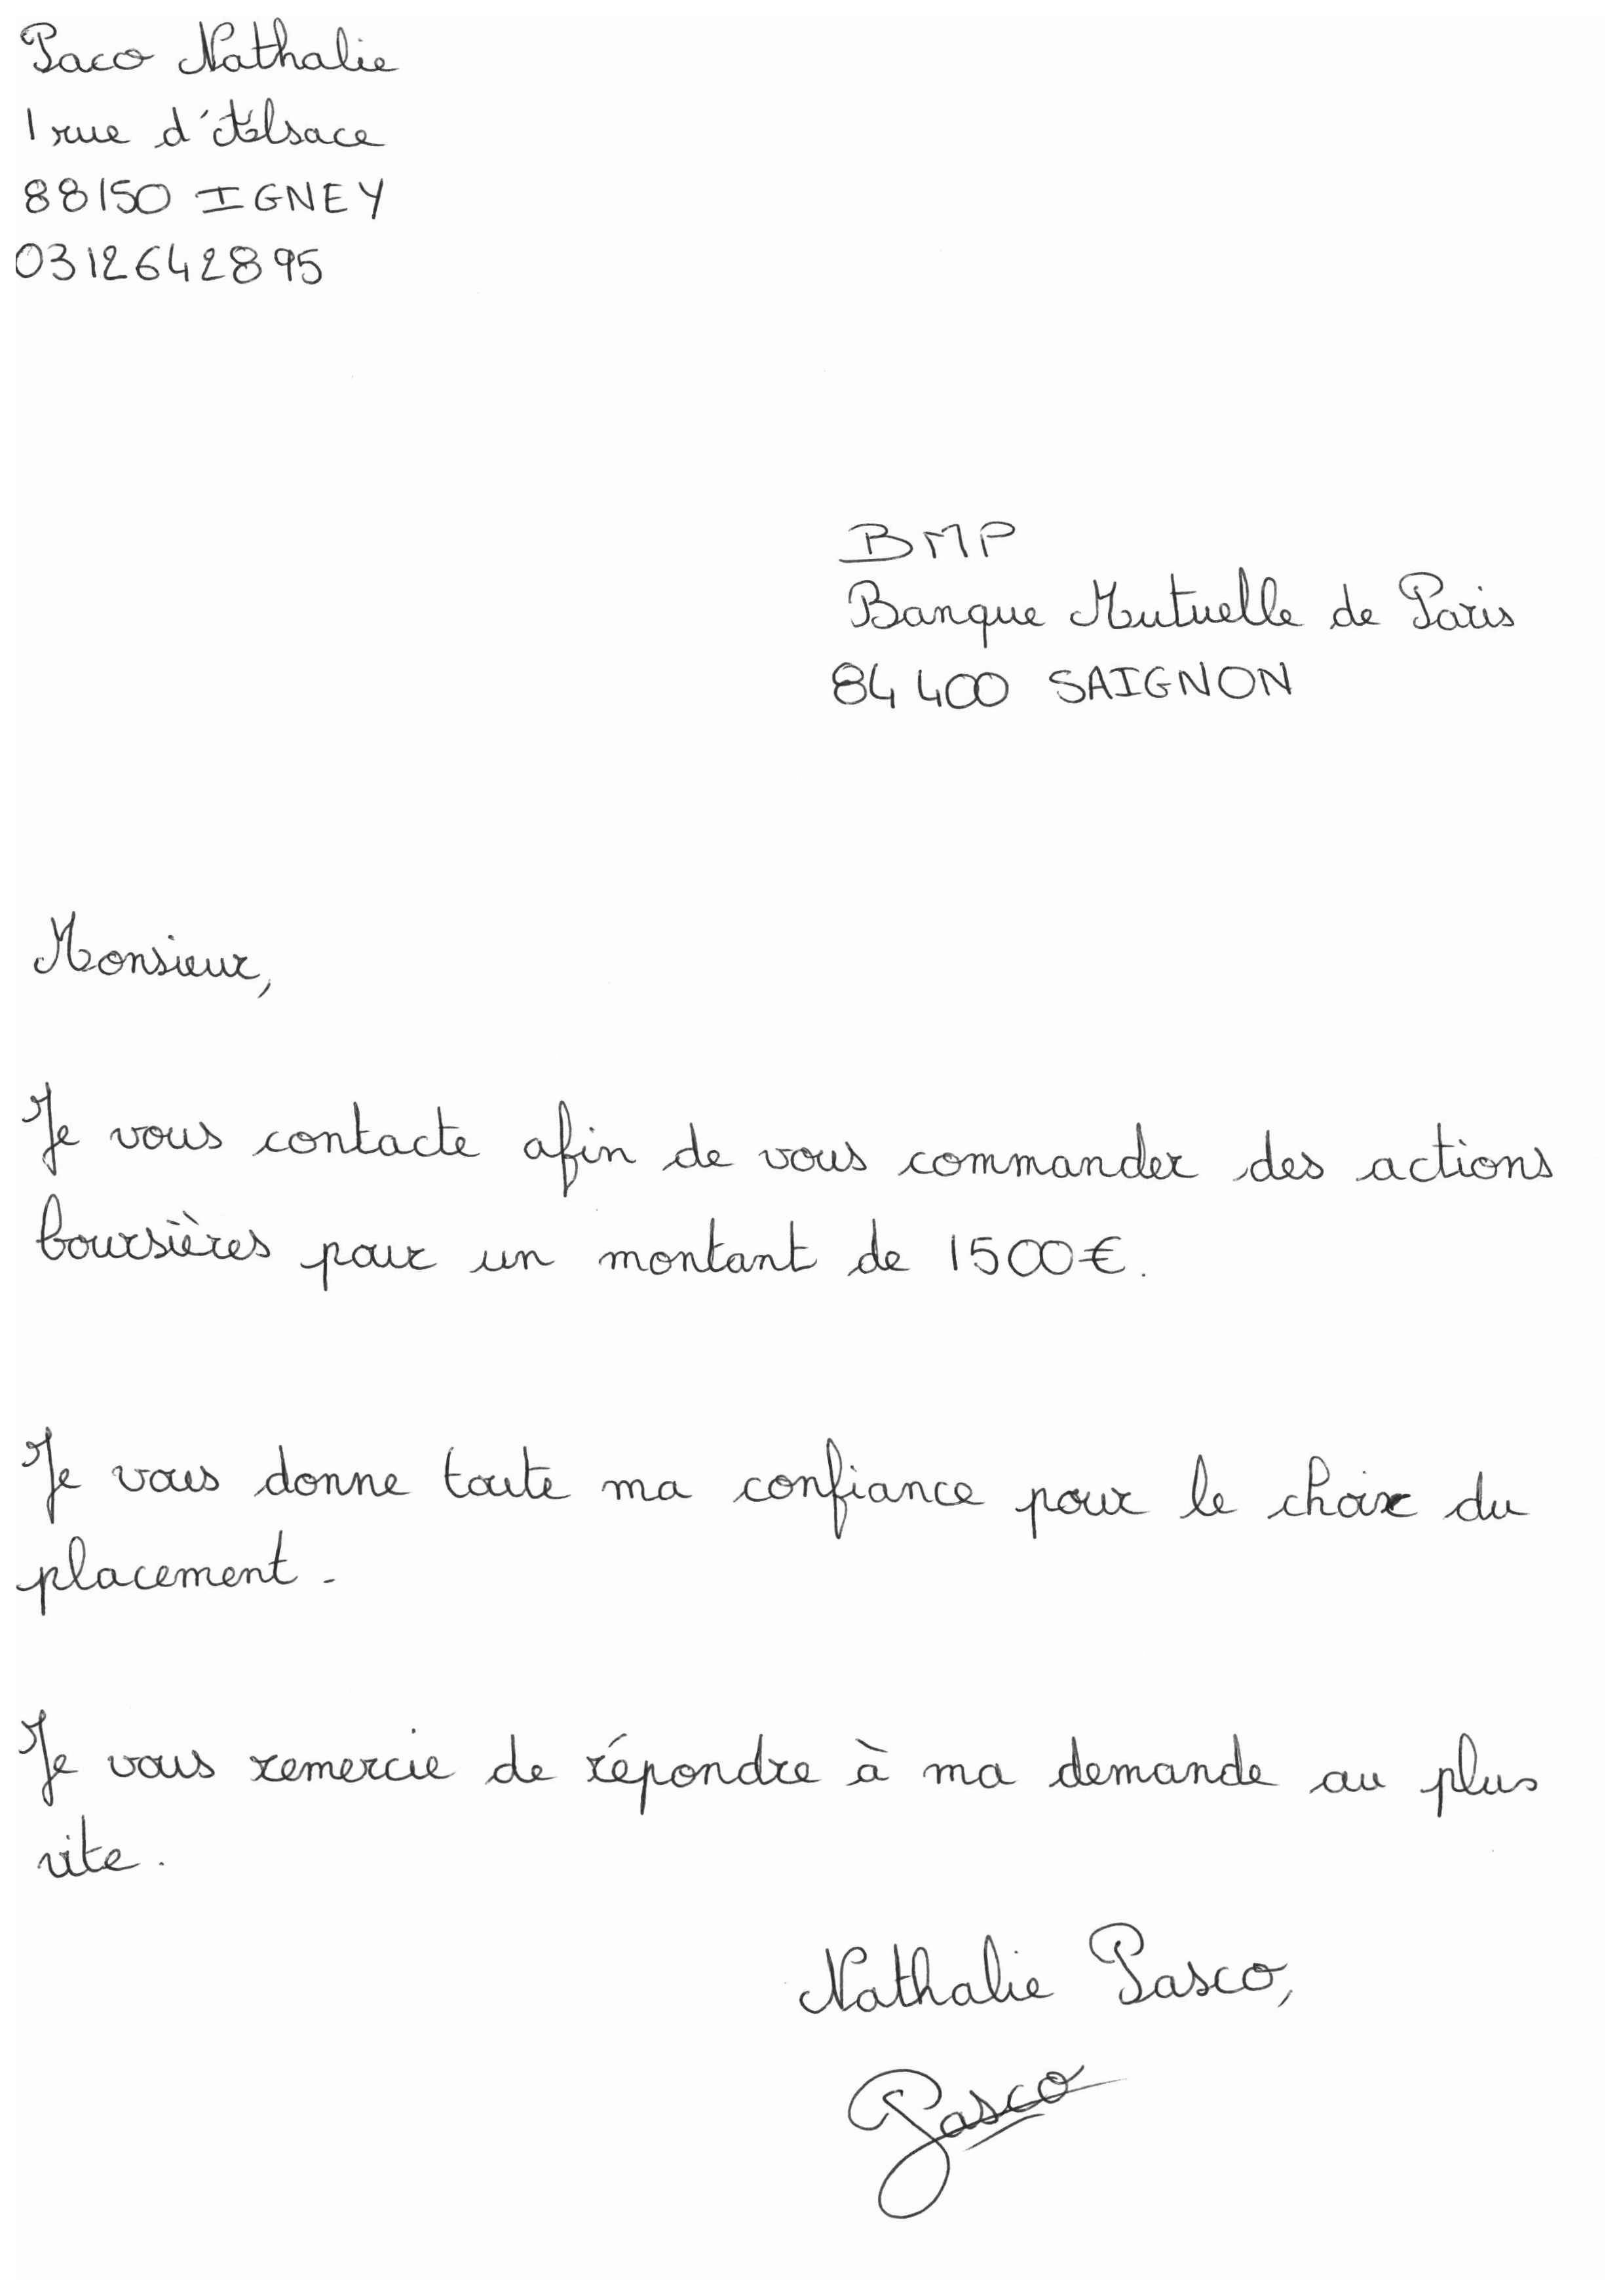 Paco Nathalie
1 rue d'Alsace
88150 IGNEY
0312642895
BMP
Banque Mutuelle de Paris
84400 SAIGNON
Monsieur,
Je vous contacte afin de vous commander des actions
boursières pour un montant de 1500€.
Je vous donne toute ma confiance pour le choix du
placement.
Je vous remercie de répondre à ma demande au plus
vite.
Nathalie Pasco,
Pasco